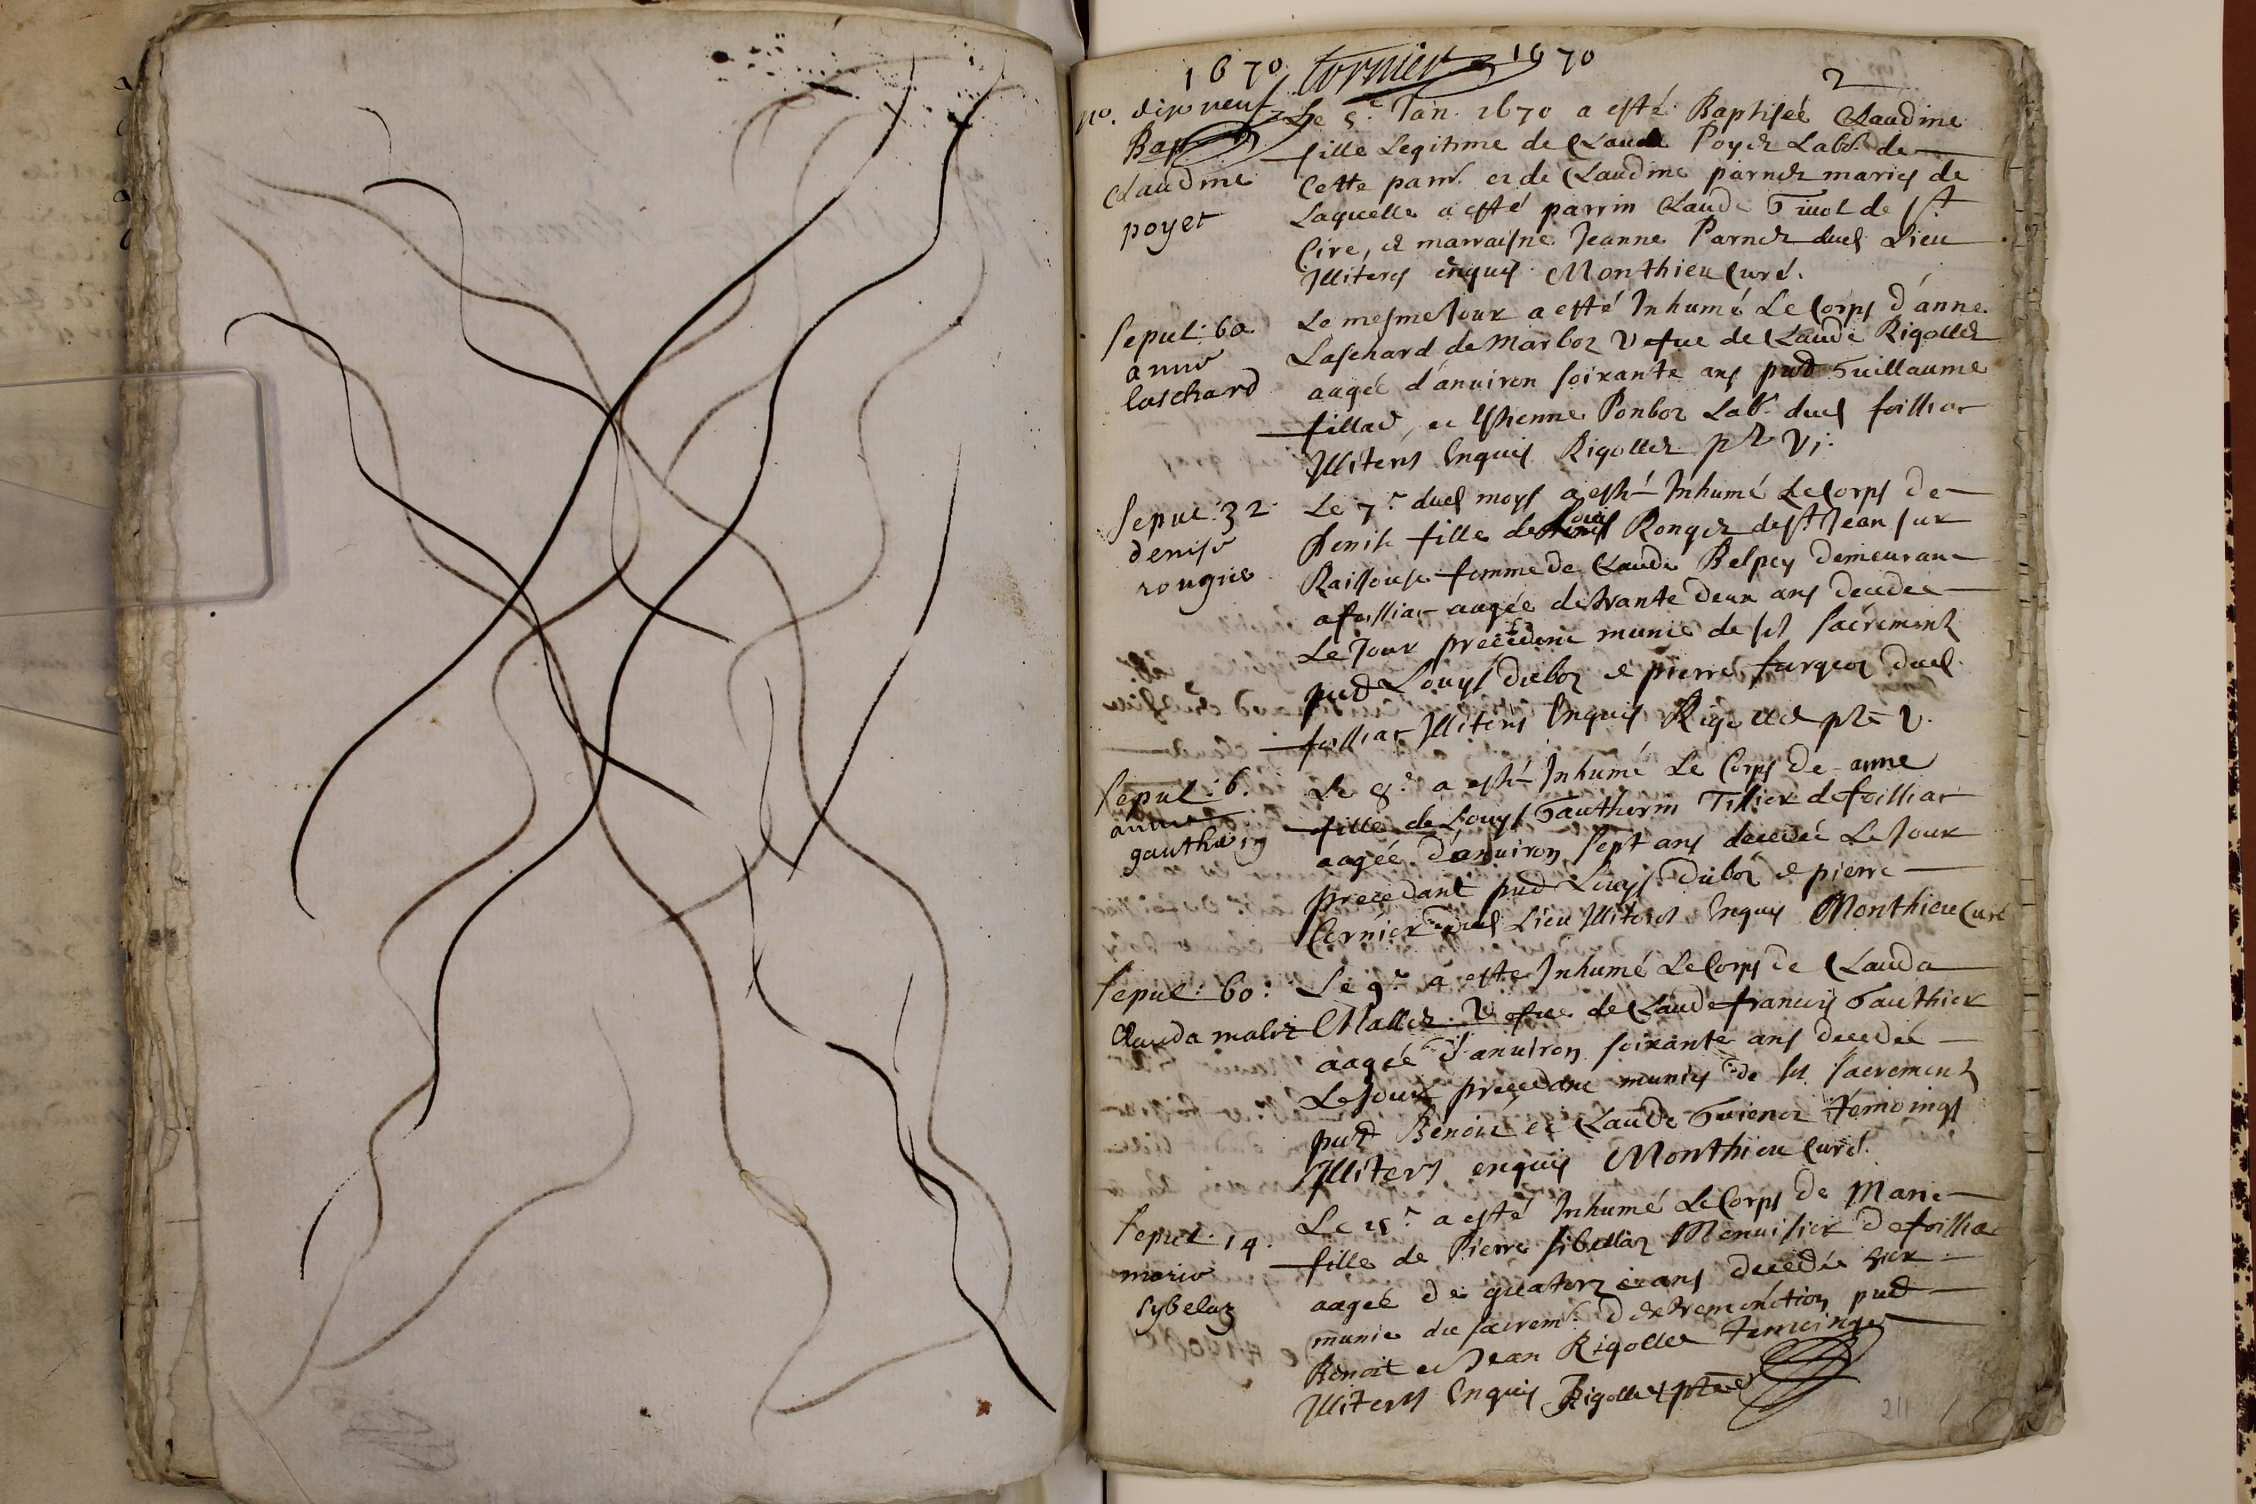 1670 Cornier 1670
2
no. dix neuf
Bap
Claudine
poyet
Le 5e Jan. 1670 a esté Baptiseé Claudine
fille Legitime de Claude Poyet Labr. de
Cette parr. et de Claudine parnet mariés de
Laquelle a esté parrin Claude de St
Cire, et marraisne Jeanne Parnet dud Lieu
Illiterés enquis Monthieu Curé.
Sepul: 60
anne
laschard
Le mesme Jour a esté Inhumé Le Corps d'anne
Laschard de Marboz Vefue de Claude Rigollet
aagée d'anuiron soixante ans pnt Guillaume
fillad, et Esthienne Ponboz Labr. dud foilliat
Illiterés Enquis Rigollet ptre vi.
Sepul: 32
denise
rougier
Le 7e dud moys a esté Inhumé Le Corps de
Denise fille de Rouget de St Jean sur
Raissouse femme de Claude Belpey demeurant
a foilliat aagée de trante deux ans decedee
Le Jour precedent munie de ses sacrements
pnt Louys duboz et pierre fargeot dud
foilliat Illiterés Enquis Rigollet ptre v.
Sepul: 6.
anne
gautherin
Le 8e a esté Inhumé Le Corps de anne
fille de Louys Gautherin Tissier de foilliat
aagée d'anuiron sept ans decedée Le Jour
precedant pnt Louys duboz et pierre
Cornier dud Lieu Illiterés Enquis Monthieu Curé
Sepul: 60:
Clauda malet
Le 9e a esté Inhumé Le Corps de Clauda
Mallet Vefue de Claude francois Gauthier
aagée d'anuiron soixante ans decedée
Le Jour precedant munie de ses sacrements
pnt Benoit et Claude Guienot témoings
Illiterés enquis Monthieu Curé.
Sepul: 14.
marie
sybelaz
Le 15e a esté Inhumé Le Corps de Marie
fille de Pierre sibellaz Menuisier de foilliat
aagée de quatorze ans decedée hier
munie du sacremt. d extremonction pnt
Benoit et Jean Rigollet temoings
Illiterés Enquis Rigollet ptre
211